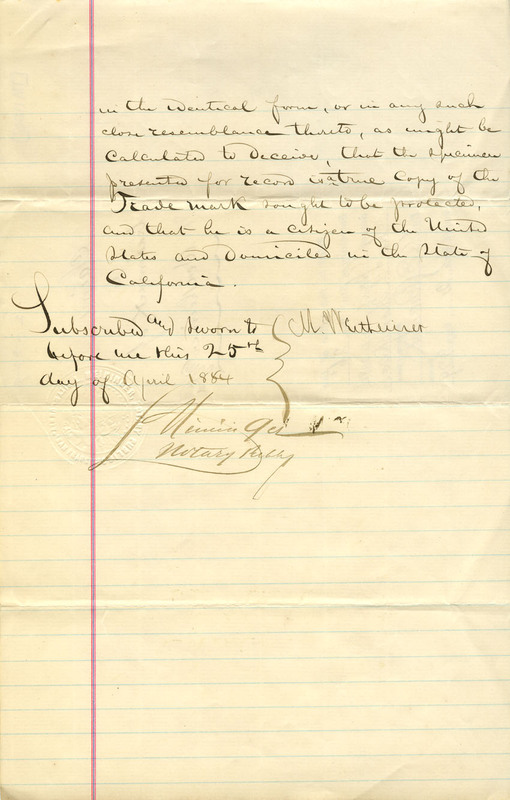 in the identical form, or in any such
close resemblance thereto, as might be
Calculated to deceive, that the specimen
presented for record is a true Copy of the
Trade Mark sought to be protected,
and that he is a citizen of the United
States and Domiciled in the State of
California.
Subscribed and sworn to
before me this 25th
day of April 1884
M. Wertheimer
Notary Public